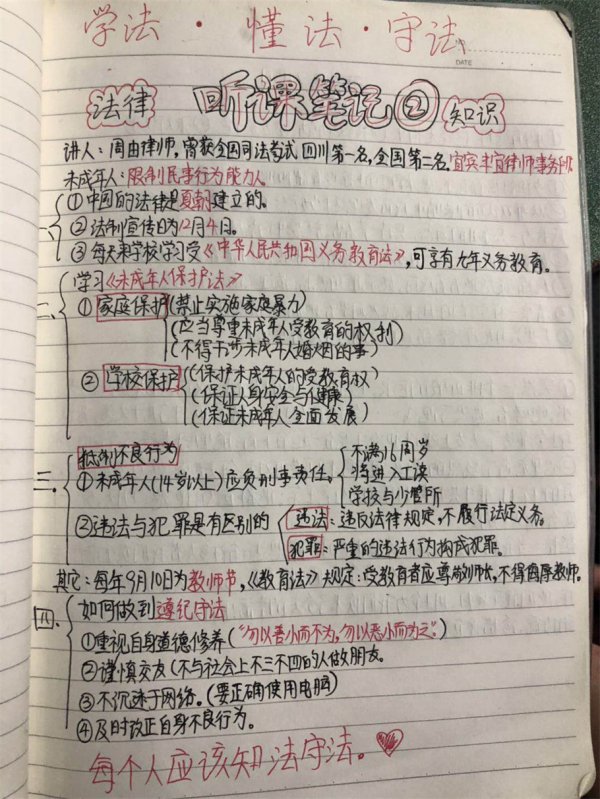 学法·懂法·守法
DATE
法律 听课笔记② 知识
讲人:周由律师,曾获全国司法考试四川第一名,全国第二名.宜宾丰宜律师事务所
未成年人:限制民事行为能力人
一、①中国的法律是夏朝建立的。
②法制宣传日为12月4日。
③每天来学校学习受《中华人民共和国义务教育法》,可享有九年义务教育。
二、学习《未成年人保护法》
①家庭保护(禁止实施家庭暴力)
(应当尊重未成年人受教育的权利)
(不得干涉未成年人婚姻的事)
②学校保护(保护未成年人的受教育权)
(保证人身安全与健康)
(保证未成年人全面发展)
三、抵制不良行为
①未成年人(14岁以上)应负刑事责任。不满16周岁
将进入工读
学校与少管所
②违法与犯罪是有区别的 违法:违反法律规定,不履行法定义务。
犯罪:严重的违法行为构成犯罪。
其它:每年9月10日为教师节,《教育法》规定:受教育者应尊敬师长,不得侮辱教师。
四、如何做到遵纪守法
①重视自身道德修养("勿以善小而不为,勿以恶小而为之")
②谨慎交友(不与社会上不三不四的人做朋友。
③不沉迷于网络。(要正确使用电脑)
④及时改正自身不良行为。
每个人应该知法守法。